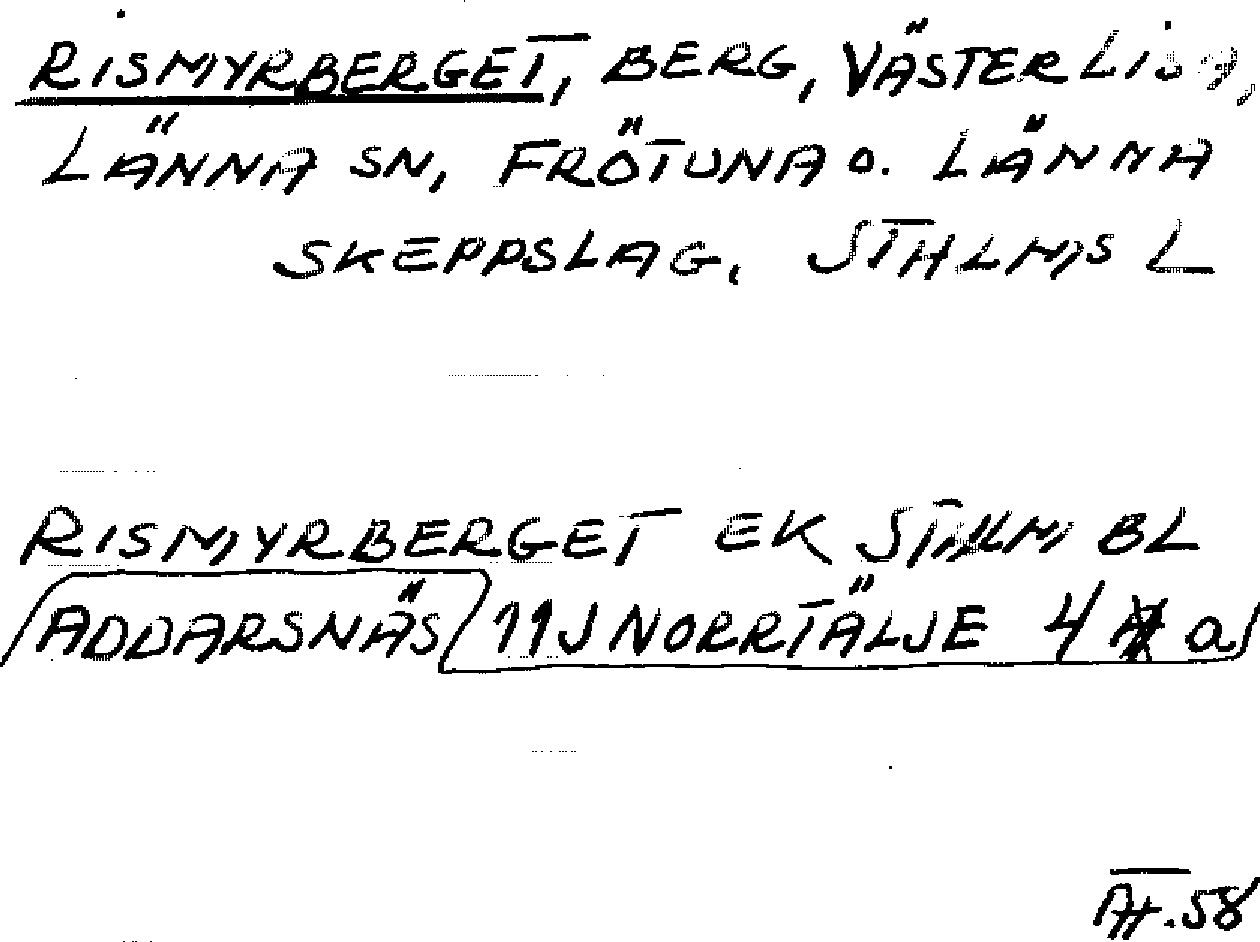 RISMYRBERGET, BERG, VÄSTERLISA,
LÄNNA SN, FRÖTUNA O. LÄNNA
SKEPPSLAG, STHLMS L
RISMYRBERGET EK STHLM BL
ADDARSNÄS 11J NORRTÄLJE 4 a
58